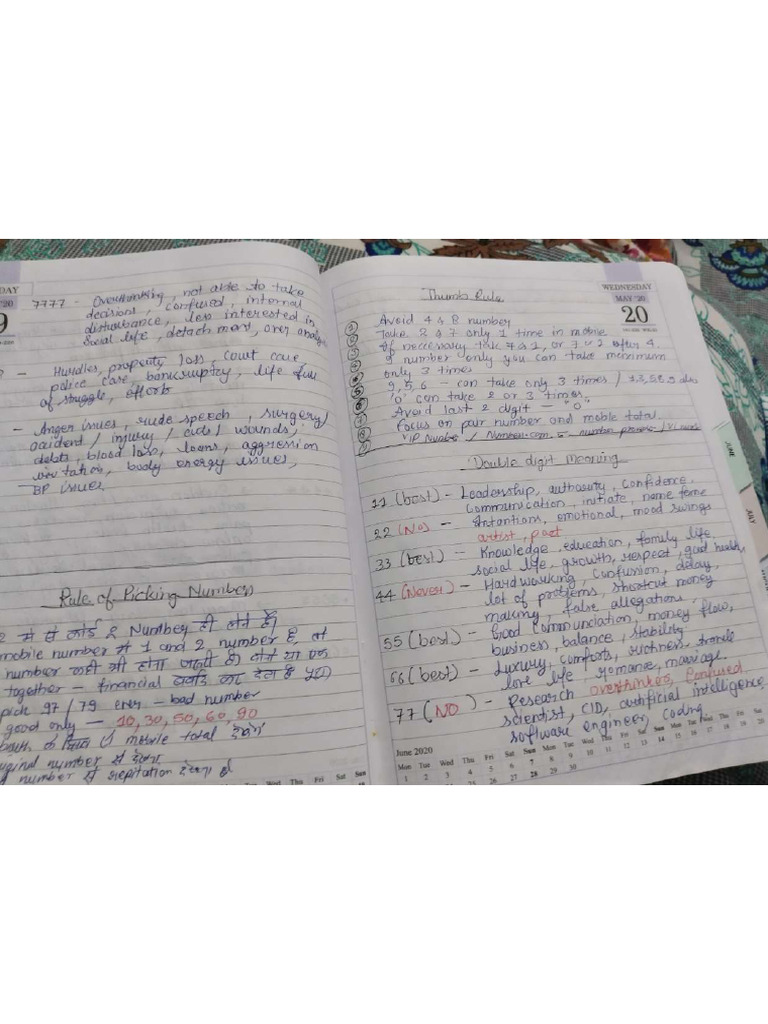 DAY
'20
9
7777 - Overthinking, not able to take
decisions, confused, internal
disturbance, less interested in
social life, detachment, over analysis
- Hurdles, property loss, court case,
police case, bankruptcy, life full
of struggle, efforts
- Anger issues, rude speech, surgery/
accident / injury / cuts / wounds,
debts, blood loss, loans, aggression
body energy issues,
BP issues
Rule of Picking Number
2 में से कोई 2 Number ही लेने हैं।
mobile number में 1 and 2 number है तो
number कही भी होना
together - financial कर देता है पूरा
pick 97 / 79 - bad number
good only - 10, 30, 50, 60, 90
mobile total देखेंगे
number से देखना
number से repitation देखना है
Thumb Rule
WEDNESDAY
MAY '20
20
① Avoid 4 & 8 number
② Take 2 & 7 only 1 time in mobile
③ If necessary take 7 & 2, or 7 2 after 4.
④ 9 number only you can take maximum
only 3 times
9, 5, 6 - can take only 3 times / 1,3,5,6,9 also
'0' can take 2 or 3 times.
Avoid last 2 digit = "0"
Focus on pair number and moble total.
VIP Number / Number.com /
Double digit Meaning
11 (best) - Leadership, authourity, confidence.
communication, initiate, name feme
22 (No) - Intantions, emotional, mood swings
artist, past
33 (best) - Knowledge, education, family life,
social life, growth, respect, good health,
44 (Never) - Hardworking, confusion, delay,
lot of problems, shortcut money
making, false allegations
55 (best) - Good Communciation, money flow,
business, balance, stability.
66 (best) - Luxury, comforts, richness,
love life, romance, marriage.
77 (NO) - Research overthinkers, Confused
scientist, CID, artificial intelligence,
software engineer, coding.
June 2020
Mon Tue Wed Thu Fri Sat Sun
1 2 3 4 5 6 7
JUNE
JULY